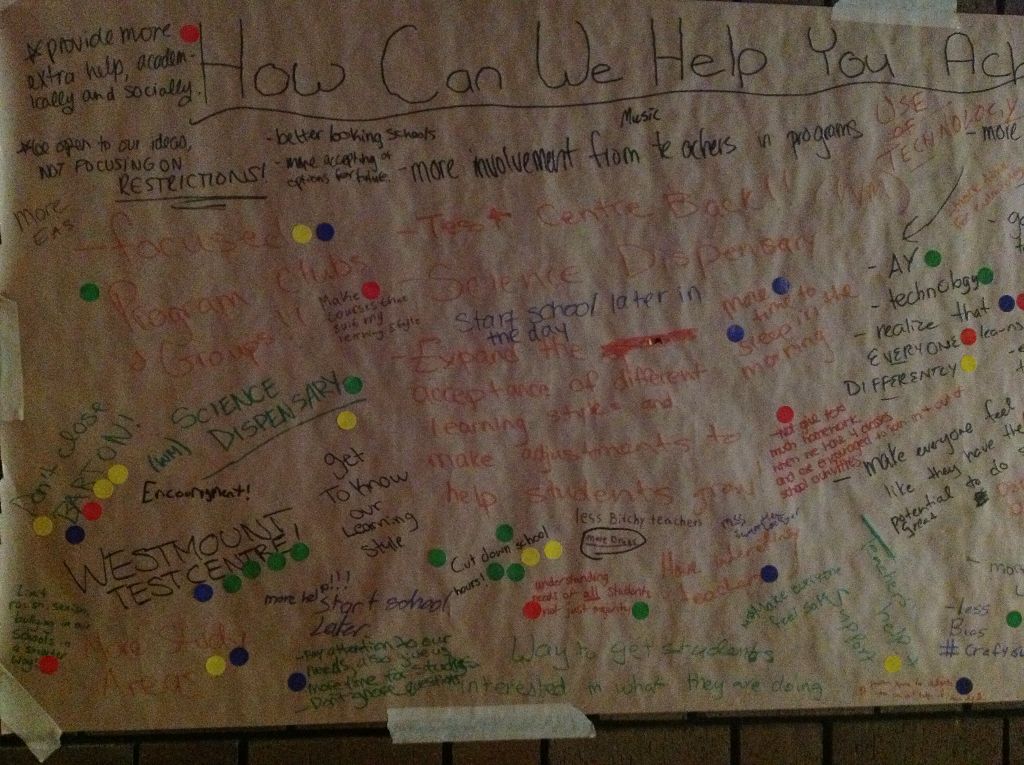 How Can We Help You Ach
* provide more
extra help, academ-
ically and socially.
* be open to our ideas,
NOT FOCUSING ON
RESTRICTIONS!
- better looking schools
- more accepting of
options for future.
Music
- more involvement from teachers in programs
USE
of
TECHNOLOGY
- more
More
EAs
- focused
Program Clubs
& Groups!!
- Test Centre Back!! (WM)
Science Dispensary
Make
courses that
suit my
learning style
Start school later in
the day
more
time to
sleep in the
morning
- AY
- technology
- realize that
EVERYONE learns
DIFFERENTLY
- Expand the
acceptance of different
learning styles and
make adjustments to
help students grow
(WM) SCIENCE
DISPENSARY
Don't close
BARTON!
Encouragment!
get
To know
our
Learning
Style
- not give too
much homework
when we have classes
and are encouraged to
school activities
- make everyone feel
like they have the
potential to do
great
WESTMOUNT
TEST CENTRE!
less Bitchy teachers
more Drugs
Cut down school
hours!
understanding
needs of all students
not just majority
more help!!!
Start school
Later
More Study
Areas
- Pay attention to our
needs, also give us
more time for studies
- Don't ignore questions
Way to get students
interested in what they are doing
make everyone
feel safe
Teachers help &
support
- less
Bias